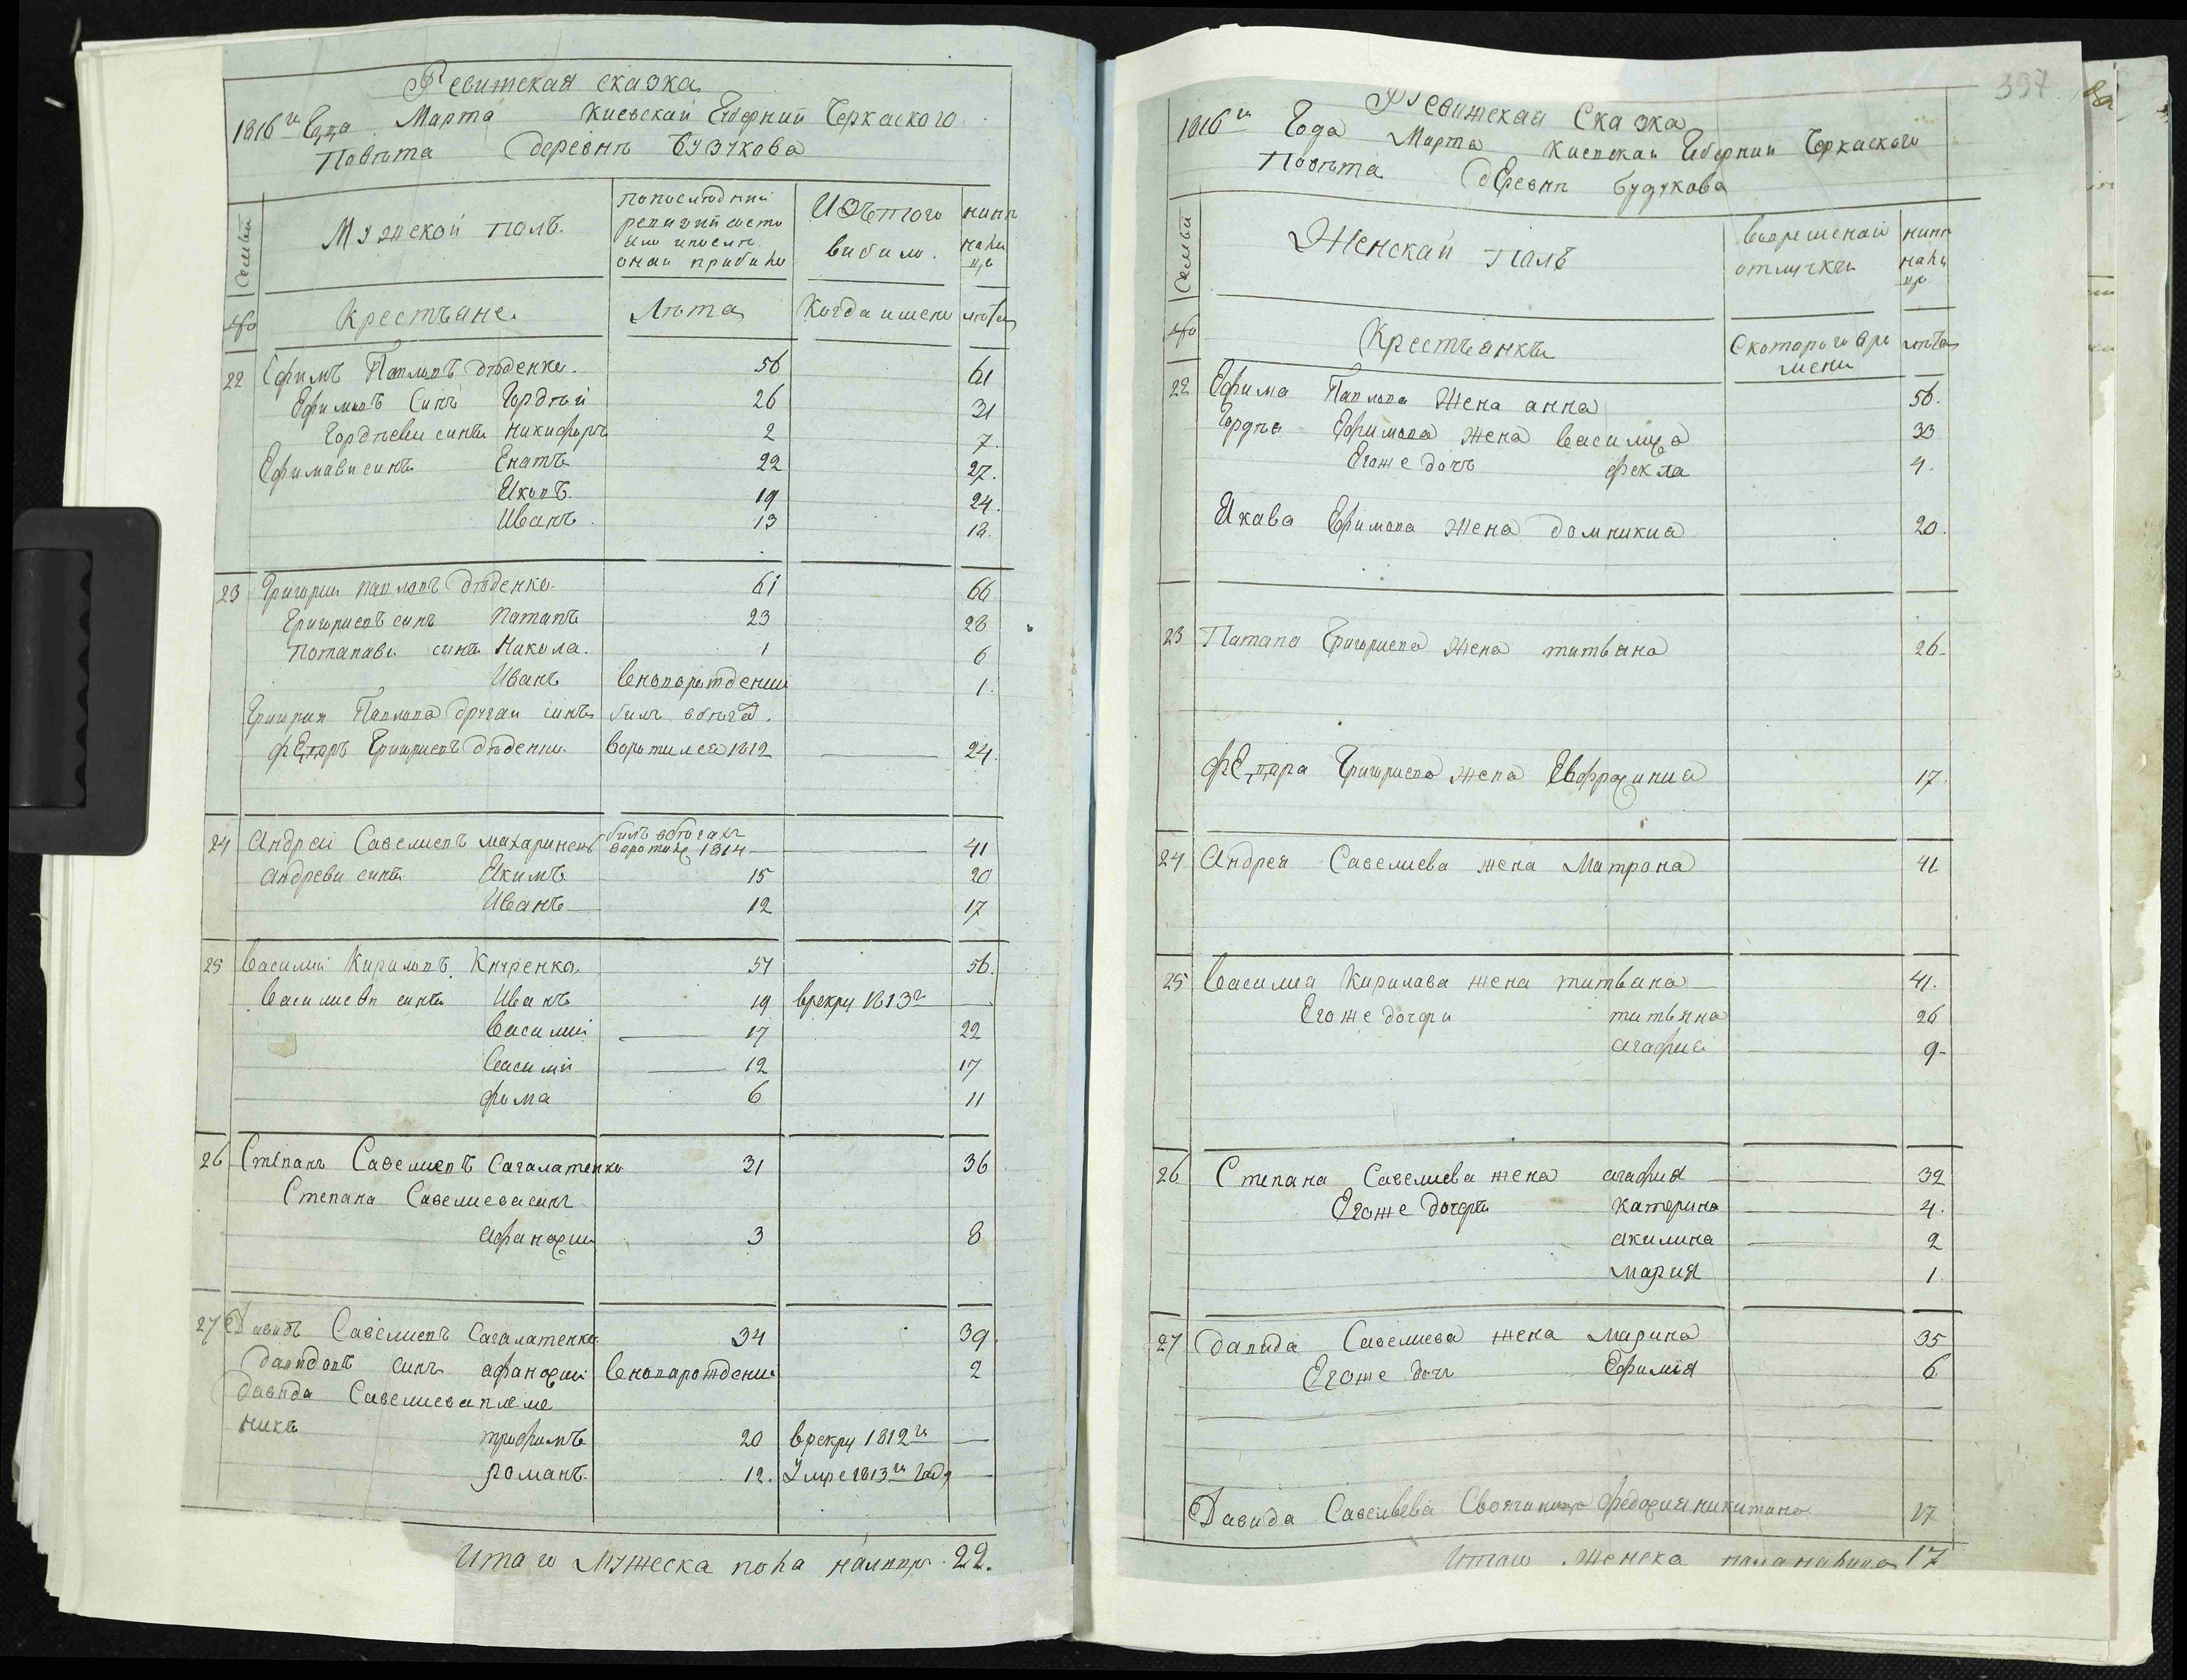 Ревижская сказка
1816го Года Марта Киевской Губернии Черкаского
Повѣта деревнѣ Бузукова
Семьи
Мужской полъ.
попоследний ревизии состояло ипослѣ оной прибило
Изътого вибило.
нинѣ налицо
№
Крестъяне.
Лѣта
Когда имено
лѣта
22 Ефимъ Павловъ дѣденко. 56 61
Ефимовъ Синъ Гордѣй 26 31
Гордѣеви сини Никифоръ 2 7.
Ефимови синъ Енатъ 22 27.
Яковъ 19 24.
Иванъ 13 18.
23 Григории павловъ дѣденко. 61 66
Григориевъ синъ Патапъ 23 28
Потапави сини Никола. 1 6
Иванъ вноворожденни 1.
Григория Павлова другаи синъ билъ вбѣгах.
фЕдоръ Григориевъ дѣденко воротился 1812 24.
24 Андрей Савелиевъ махаринецъ билъ вбѣгахъ воротил 1814 41
Андреви сини Якимъ 15 20
Иванъ 12 17
25 Василий Кириловъ Кнуренко. 51 56.
Василиеви сини Иванъ 19 врекру 1813г
Василий 17 22
Василий 12 17
фома 6 11
26 Степанъ Савелиевъ Сагалатенко 31 36
Степана Савелиева синъ
афанасии 3 8
27 Давидъ Савелиевъ Сагалатенко. 34 39.
Давидовъ синъ афанасии вноворождени 2
Давида Савелиева племе
ники трофимъ 20 врекру 1812го
романъ. 12. Умре 1813го году
Итаго мужеска пола налицо 22.
397
Ревижская Сказка
1816го Года Марта Киевскаи Губернии Черкаского
Повѣта дЕревнѣ Бузукова
Семьи
Женскаи Полъ
вовременой отлучки
нинѣ налицо
№
Крестьянки
Скотораго времени
лѣта
22 Ефима Павлова Жена анна 56.
Гордѣя Ефимова жена василиса 33
Егоже дочъ фекла 4.
Якава Ефимова жена домникиа 20.
23 Патапа Григориева жена титвяна 26.
фЕдора Григориева жена Евфросиниа 17.
24 Андрея Савелиева жена Матрона 41
25 Василиа Кирилава жена титвана 41.
Егоже дочери титвяна 26
агафиа 9-
26 Степана Савелиева жена агафия 32
Егоже дочери Катерина 4.
акилина 2
мария 1
27 Давида Савелиева жена Марина 35
Егоже дочъ Ефимія 6
Давида Савельева федосия никитана. 17
Итаго женска пола налицо 17